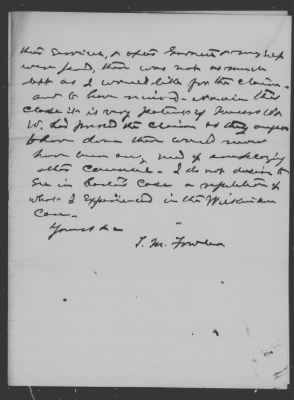 their services, & after Garnett & my help
were paid, there was not as much
left as I would like for the claim-
ant to have received. Again this
case it is very
W. had pressed the claim as they ought
to have done there would never
have been any need of employing
other Counsel. I do not desire to
see in case a repetition of
what I experienced in the Wilkinson
case.
Yours &c
T. M. Fowler